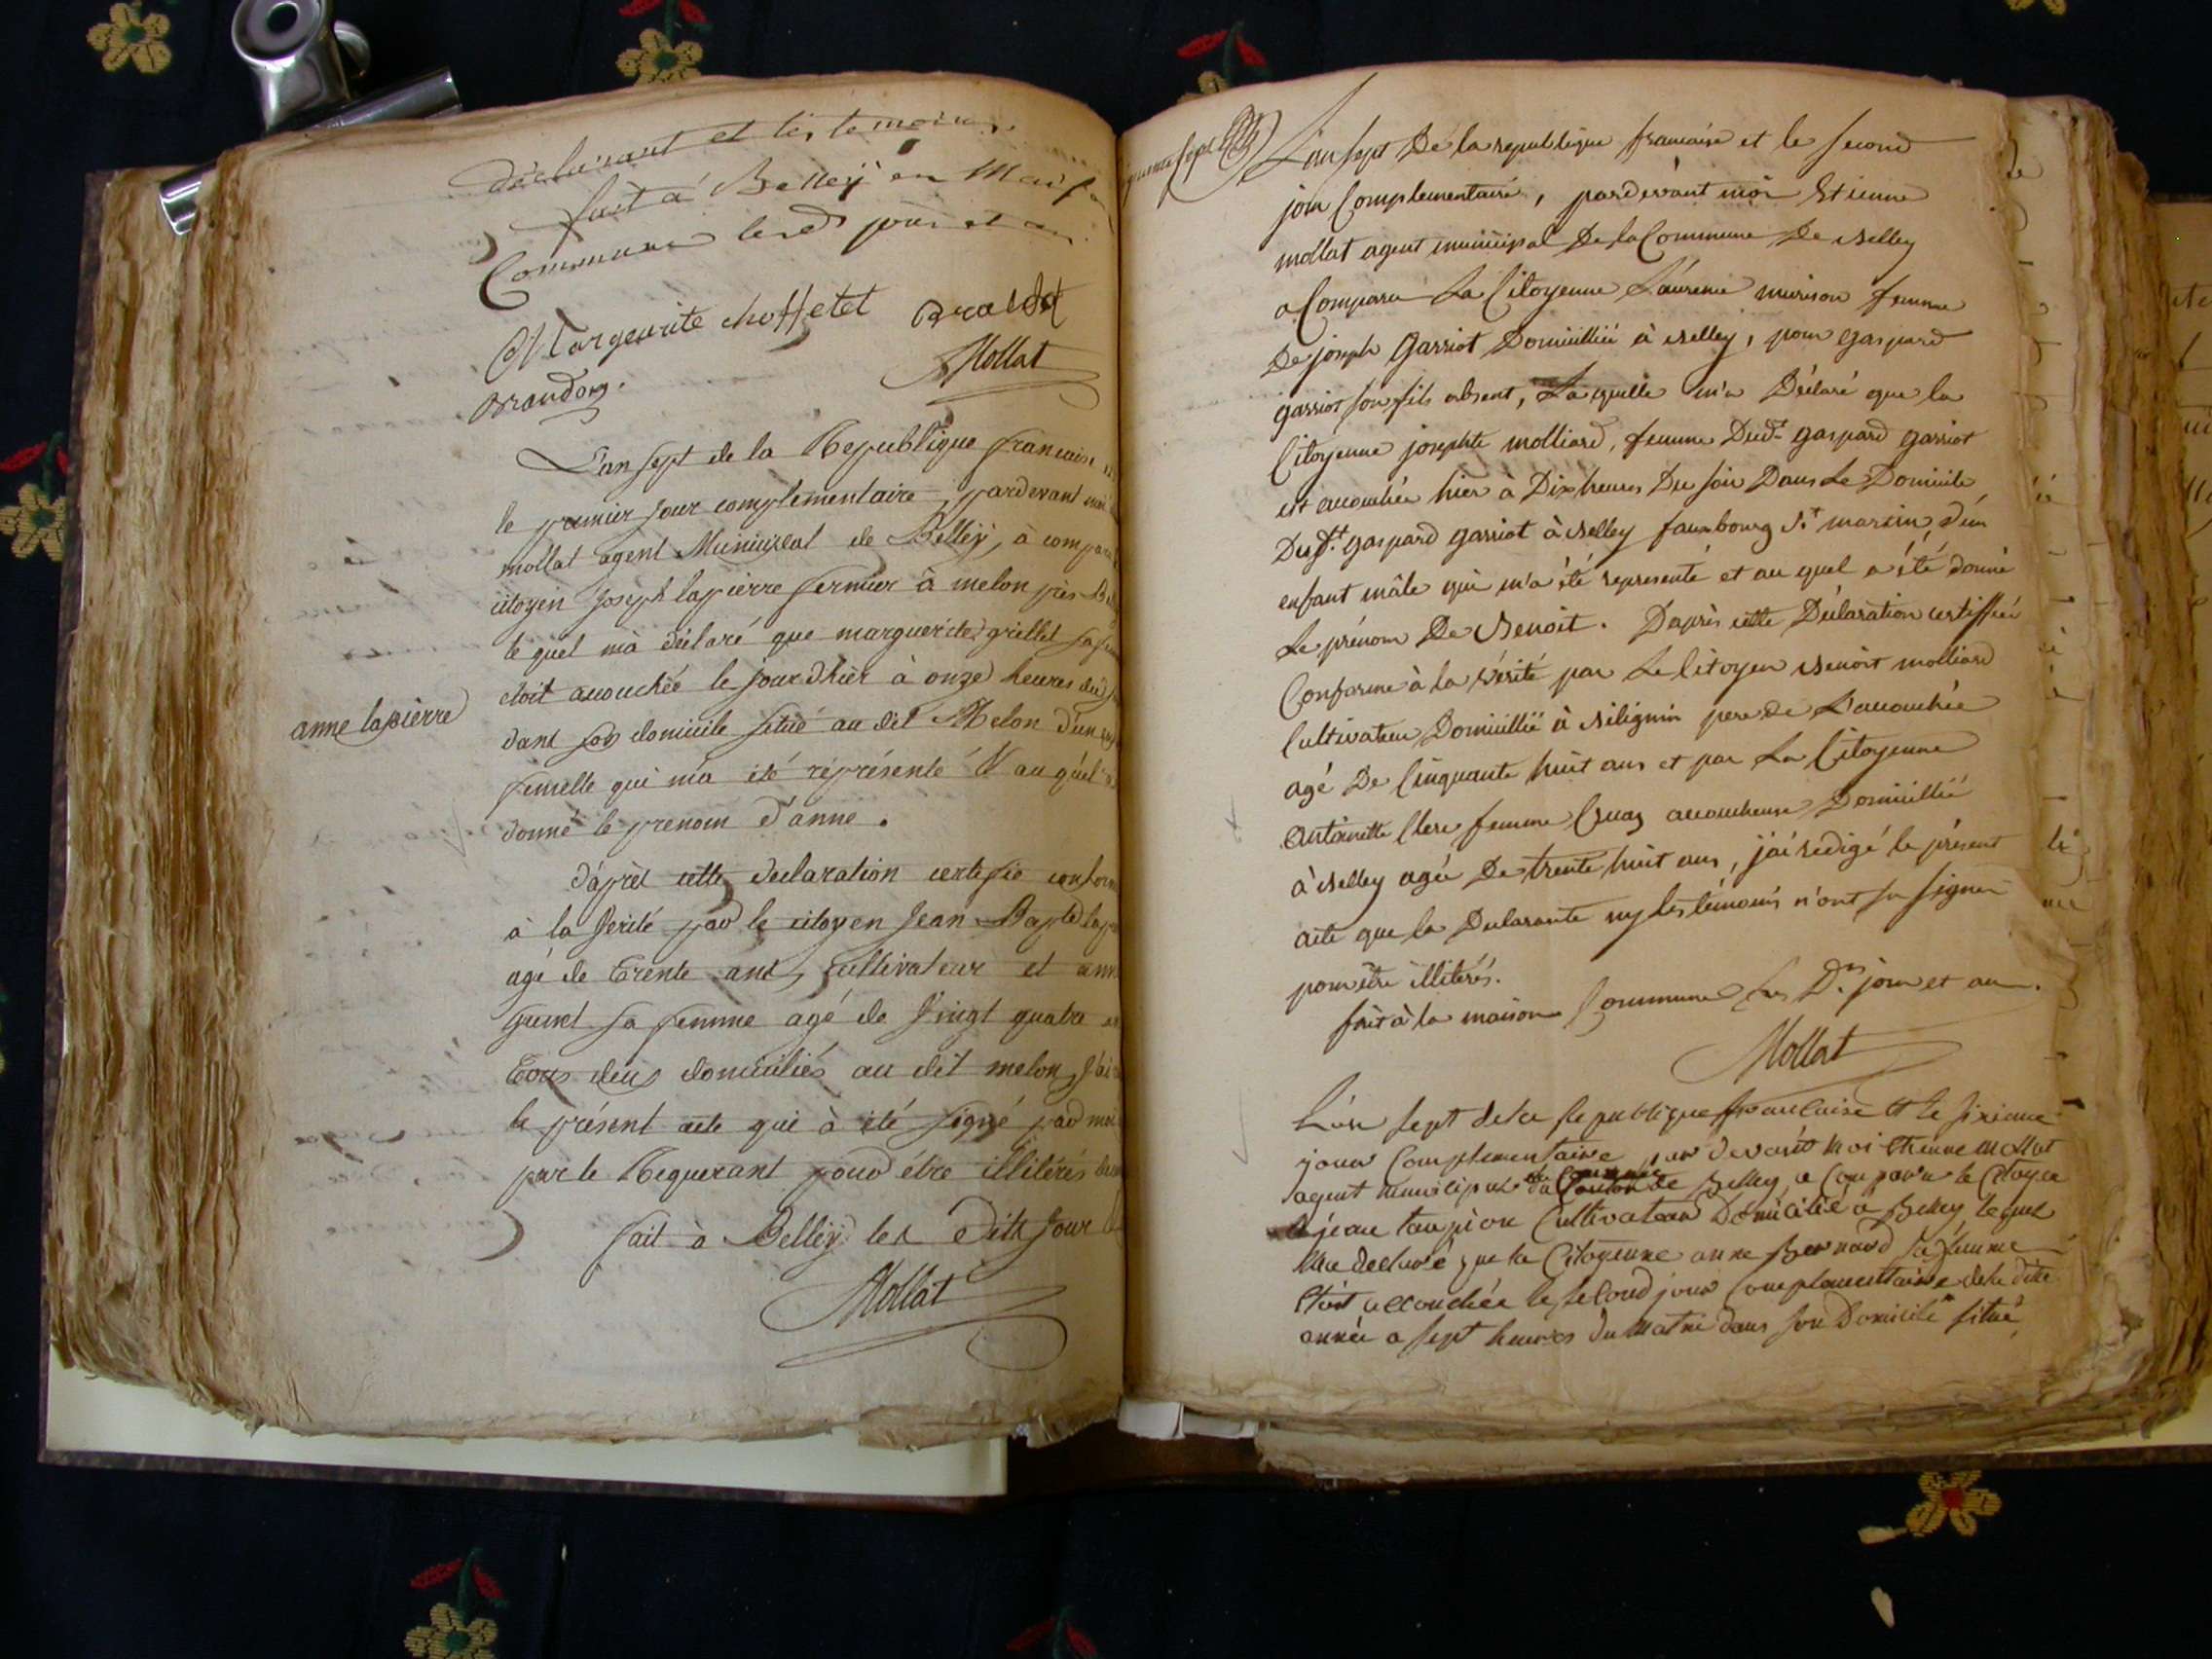 déclarant et les temoins.
fait a Belley en Maison
Commune lesd jour et an
Margeurite choffetet
Mollat
anne lapierre
L'an sept de la Republique francaise
le premier Jour complementaire, pardevant moi
mollat agent Municipal de Belley, à comparu
citoyen Joseph lapierre fermier à melon près
le quel m'à déclaré que marguerite grillet sa
etoit acouchée le jour d'hièr à onze heures du
dans son domicile situé au dit Melon d'un
femelle qui m'a été réprésenté & au quel
donné le prenom d'anne.
d'après cette declaration certifié conforme
à la vérité par le citoyen Jean Bapte
agé de trente ans, cultivateur et anne
sa femme agé de vingt quatre
Tous deux domiciliés au dit melon, J'ai
le présent acte qui à été signé par moi
par le Requerant pour être illitérés
fait à Belley les dits Jour
Mollat
L'an sept De la republique francaise et le second
jour Complementaire, pardevant moi Etienne
mollat agent municipal De la Commune De Belley
a Comparu La Citoyenne Laurence murison femme
De joseph Garriot Domicilliée à Belley, pour gaspard
garriot son fils absent, Laquelle m'a Déclaré que la
Citoyenne josephte molliard, femme Dud.t gaspard garriot
est acouchée hier à Dix heures Du soir Dans Le Domicile
Dud.t gaspard garriot à Belley fauxbourg S.t martin d'un
enfant mâle qui m'a été representé et au quel a été donné
Le prénom De Benoit. D'après cette Déclaration certiffiée
Conforme à la vérité par Le Citoyen Benoit molliard
Cultivateur Domicillié à Bilignin pere de L'acouchée
agé De Cinquante huit ans et par La Citoyenne
Antoinette Clerc femme Cuaz acoucheuse Domicilliée
à Belley agée De trente huit ans, j'ai redigé le présent
acte que la Declarante ny les témoins n'ont su signer
pour être illiterés.
fait à la maison Commune Les D.ts jour et an.
Mollat
L'an sept de la Republique francaise & le sixieme
jour Complementaire, par devant moi Etienne mollat
agent municipal de la Commune de Belley, a Comparu le Citoyen
jean taupion Cultivateur Domicilié a Belley lequel
m'a declaré que la Citoyenne anne Bernard sa femme
étoit accouchée le second jour Complementaire de la dite
année a sept heures du matin dans son Domicile situé